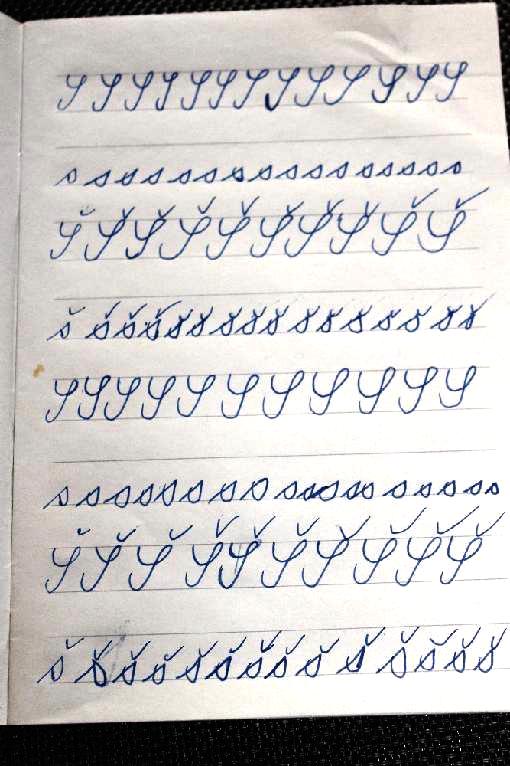 S S S S S S S S S S S S S
s s s s s s s s s s s s s s s s
Š Š Š Š Š Š Š Š Š Š
š š š š š š š š š š š š š š š š
S S S S S S S S S S S
s s s s s s s s s s s s s s s s s
Š Š Š Š Š Š Š Š Š Š
š š š š š š š š š š š š š š